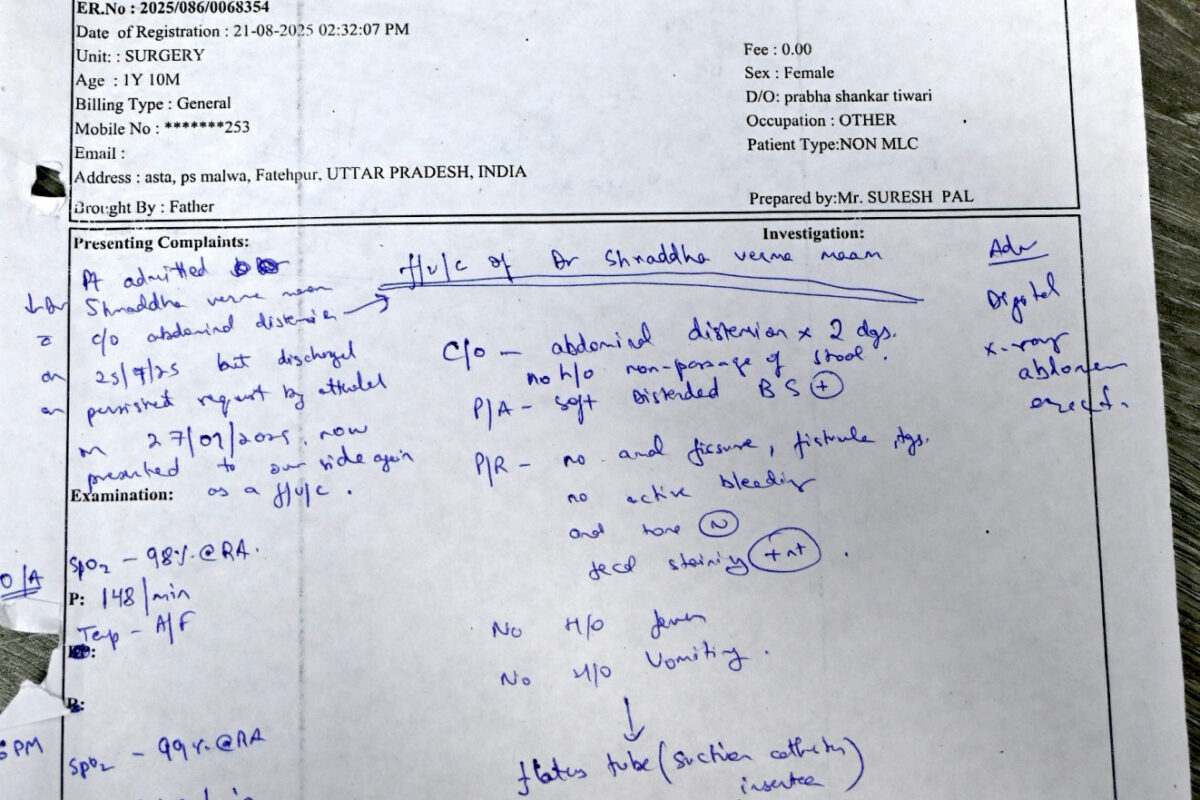 ER.No : 2025/086/0068354
Date of Registration : 21-08-2025 02:32:07 PM
Unit: : SURGERY
Age : 1Y 10M
Billing Type : General
Mobile No : *******253
Email :
Address : asta, ps malwa, Fatehpur, UTTAR PRADESH, INDIA
Brought By : Father
Fee : 0.00
Sex : Female
D/O: prabha shankar tiwari
Occupation : OTHER
Patient Type:NON MLC
Prepared by:Mr. SURESH PAL
Presenting Complaints:
Pt admitted
Shraddha verma mam
c/o abdominal distension
on 25/7/25 but discharged
on persisted request by attendet
on 27/07/2025. now
presented to our side again
as a f/u/c.
Examination:
O/A
SpO2 - 98%.@RA.
P: 148/min
Temp - A/F
PM
SpO2 - 99%.@RA
Investigation:
f/u/c of Dr Shraddha verma maam
C/o - abdominal distension x 2 dys.
no h/o non-passage of stool.
P/A - Soft Distended BS +
P/R - no anal fissure, fistula,
no active bleeding
anal tone N
fecal staining
No H/O fever
No H/O Vomiting.
↓
flatus tube (suction catheter)
inserted
Adv
Digital
x-ray
abdomen
erect.